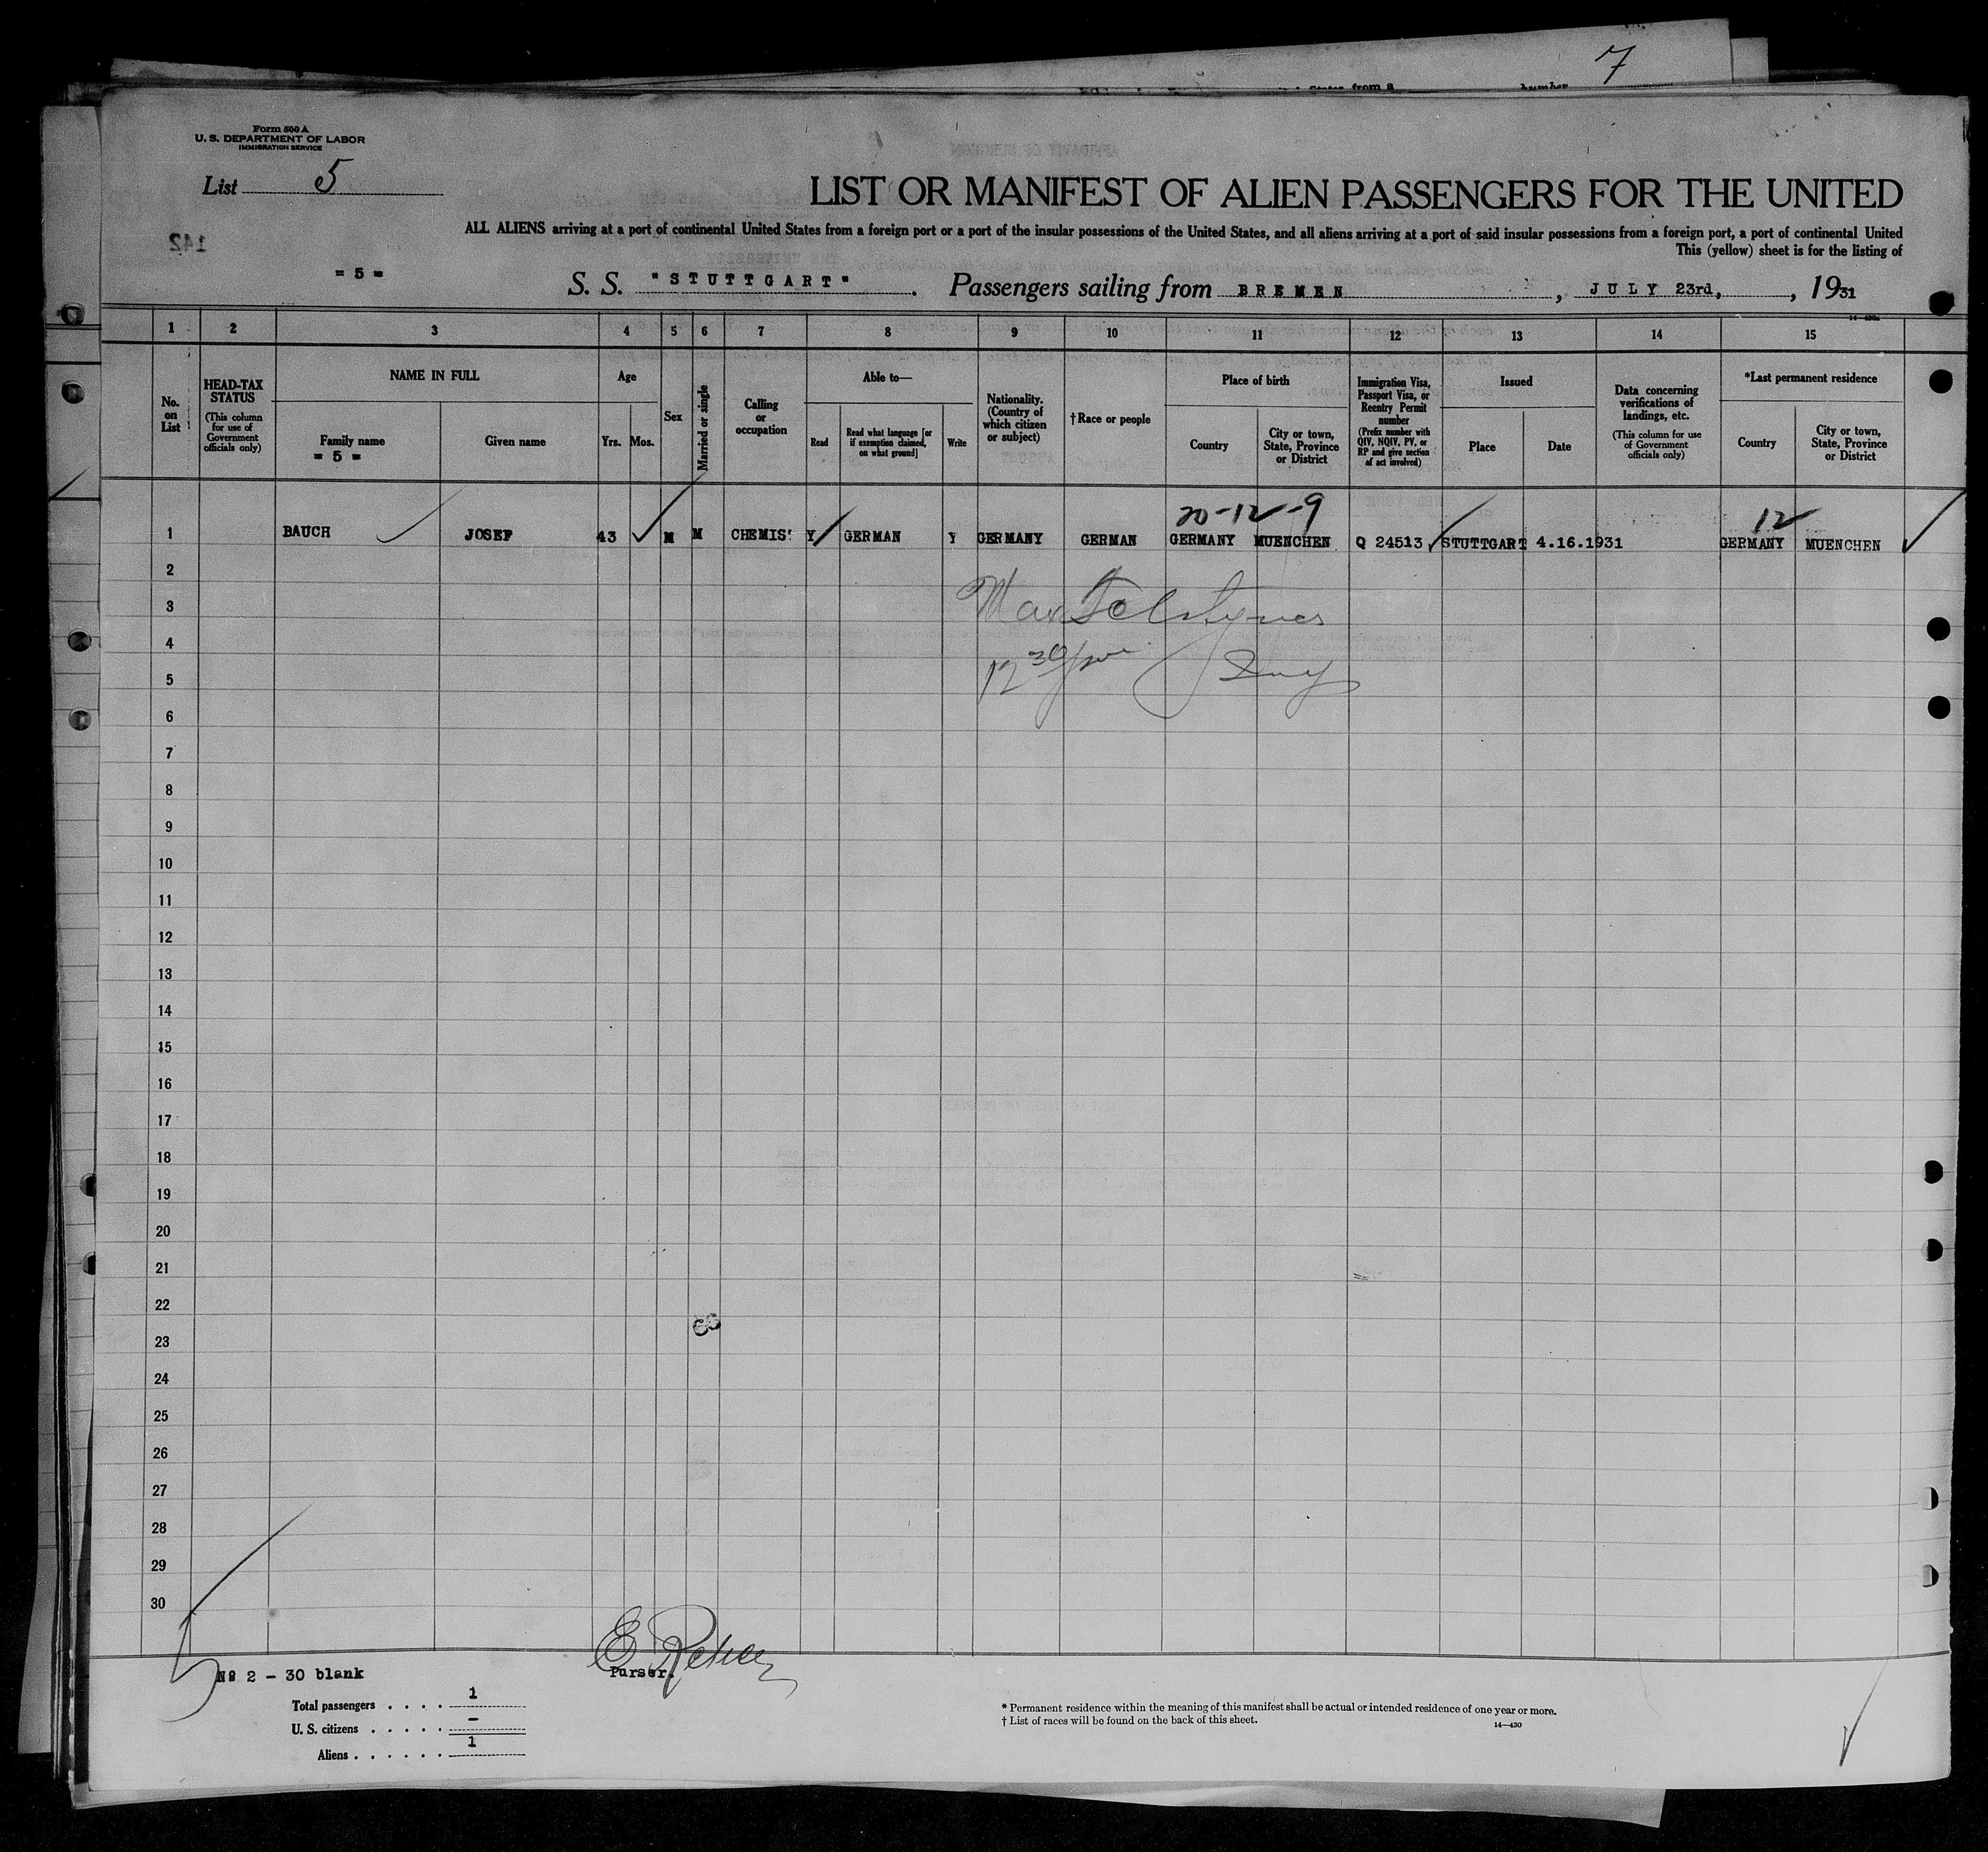 7
States from a
number
Form 500 A
U. S. DEPARTMENT OF LABOR
IMMIGRATION SERVICE
List 5
LIST OR MANIFEST OF ALIEN PASSENGERS FOR THE UNITED
ALL ALIENS arriving at a port of continental United States from a foreign port or a port of the insular possessions of the United States, and all aliens arriving at a port of said insular possessions from a foreign port, a port of continental United
This (yellow) sheet is for the listing of
142
= 5 =
S. S. "STUTTGART". Passengers sailing from BREMEN, JULY 23rd, , 1931
1 2 3 4 5 6 7 8 9 10 11 12 13 14 15
No. on List
HEAD-TAX STATUS
(This column for use of Government officials only)
NAME IN FULL
Family name
= 5 =
Given name
Age
Yrs. Mos.
Sex
Married or single
Calling or occupation
Able to—
Read
Read what language [or if exemption claimed, on what ground]
Write
Nationality. (Country of which citizen or subject)
† Race or people
Place of birth
Country
City or town, State, Province or District
Immigration Visa, Passport Visa, or Reentry Permit number
(Prefix number with QIV, NQIV, PV, or RP and give section of act involved)
Issued
Place
Date
Data concerning verifications of landings, etc.
(This column for use of Government officials only)
*Last permanent residence
Country
City or town, State, Province or District
20-12-9
12
1 BAUCH JOSEF 43 M M CHEMIS' Y GERMAN Y GERMANY GERMAN GERMANY MUENCHEN Q 24513 STUTTGART 4.16.1931 GERMANY MUENCHEN
2
3
4
12 30
5
6
7
8
9
10
11
12
13
14
15
16
17
18
19
20
21
22
23
24
25
26
27
28
29
30
No 2 - 30 blank
Purser.
Total passengers . . . . 1
U. S. citizens . . . . . –
Aliens . . . . . . 1
* Permanent residence within the meaning of this manifest shall be actual or intended residence of one year or more.
† List of races will be found on the back of this sheet.
14—430